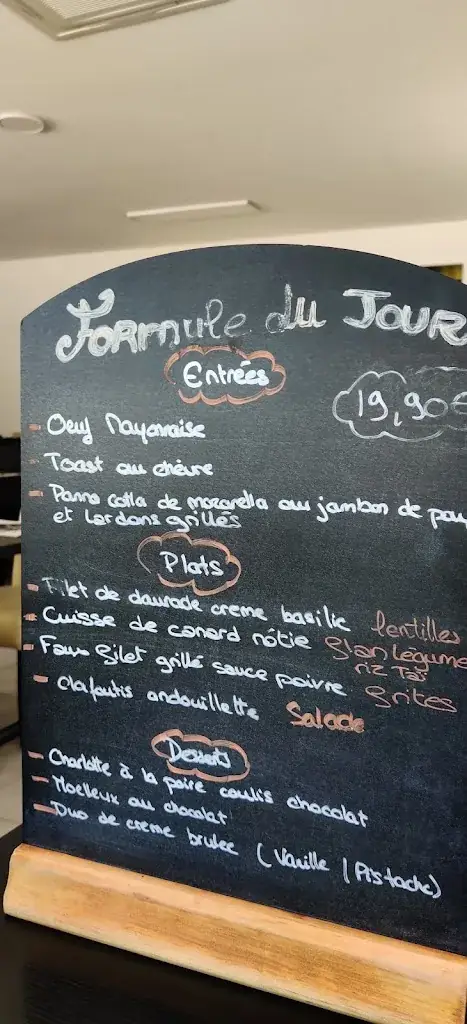 Formule du Jour
Entrées
19,90€
- Oeuf Mayonnaise
- Toast au chèvre
- Panna cotta de mozarella au jambon de pay
et lardons grillés
Plats
- Filet de daurade creme basilic lentilles
- Cuisse de canard rôtie flan légume
riz Taï
- Faux filet grillé sauce poivre frites
- clafoutis andouillette Salade
Desserts
- Charlotte à la poire coulis chocolat
- Moelleux au chocolat
- Duo de creme brulee (Vanille / Pistache)